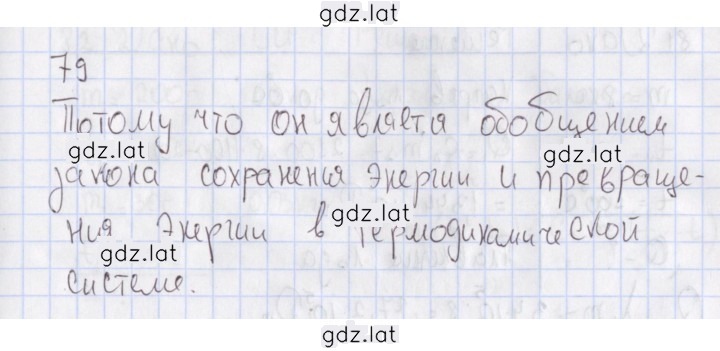 gdz.lat
79
Потому что он является обобщением
gdz.lat
gdz.lat
закона сохранения энергии и превраще-
gdz.lat
ния энергии в термодинамической
gdz.lat
gdz.lat
системе.
gdz.lat